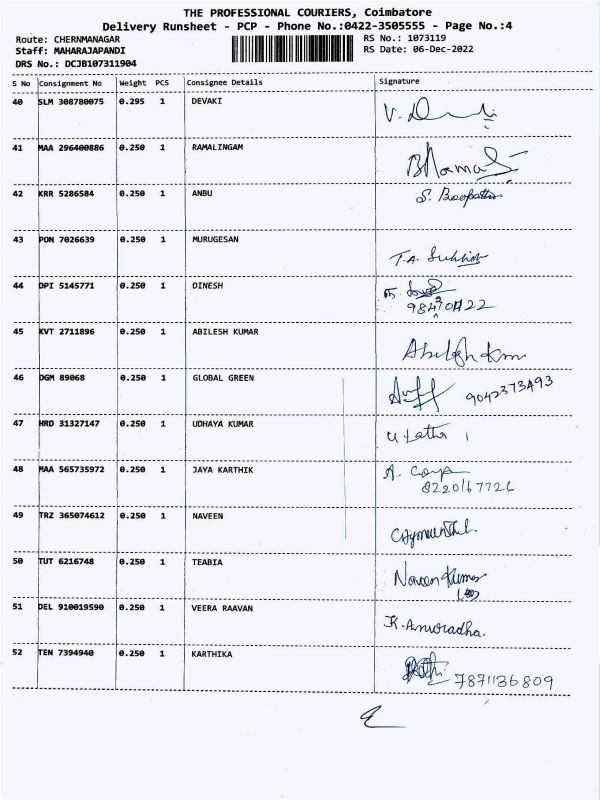 THE PROFESSIONAL COURIERS, Coimbatore
Delivery Runsheet - PCP - Phone No.:0422-3505555 - Page No.:4
Route: CHERNMANAGAR RS No.: 1073119
Staff: MAHARAJAPANDI RS Date: 06-Dec-2022
DRS No.: DCJB107311904
S No Consignment No Weight PCS Consignee Details Signature
40 SLM 308780075 0.295 1 DEVAKI
41 MAA 296400886 0.250 1 RAMALINGAM
42 KRR 5286584 0.250 1 ANBU
43 PON 7026639 0.250 1 MURUGESAN
44 DPI 5145771 0.250 1 DINESH
45 KVT 2711896 0.250 1 ABILESH KUMAR
46 DGM 89068 0.250 1 GLOBAL GREEN 9042373493
47 HRD 31327147 0.250 1 UDHAYA KUMAR U Latha
48 MAA 565735972 0.250 1 JAYA KARTHIK
49 TRZ 365074612 0.250 1 NAVEEN
50 TUT 6216748 0.250 1 TEABIA Naveen Kumar
51 DEL 910019590 0.250 1 VEERA RAAVAN K. Anuradha.
52 TEN 7394940 0.250 1 KARTHIKA 7871136809